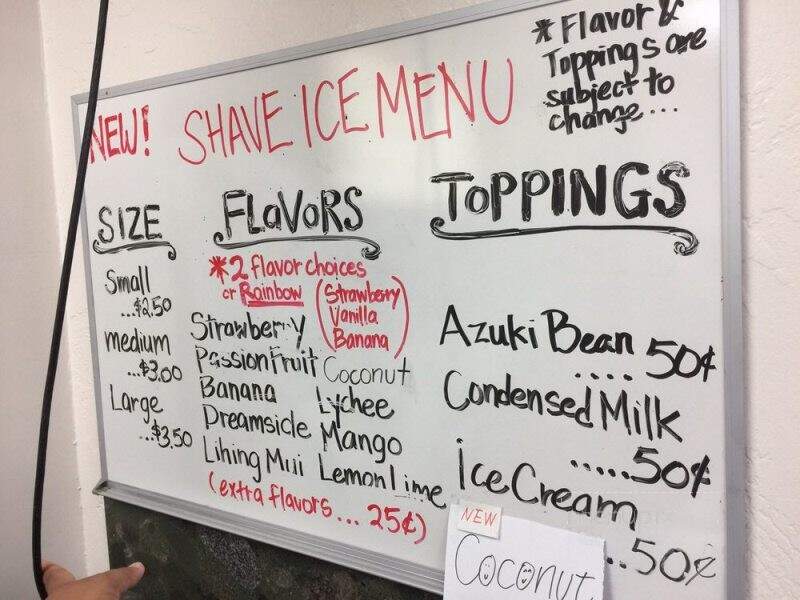 NEW! SHAVE ICE MENU
* Flavor &
Toppings are
subject to
change...
SIZE
Small
...$2.50
medium
...$3.00
Large
...$3.50
FLaVoRS
*2 flavor choices
or Rainbow
(Strawberry
Vanilla
Banana)
Strawberry
Passion Fruit
Banana
Dreamsicle
Lihing Miii
Coconut
Lychee
Mango
Lemon Lime
(extra flavors... 25¢)
ToPPINGS
Azuki Bean
.... 50¢
Condensed Milk
.....50¢
ice Cream
..50¢
NEW
Coconut